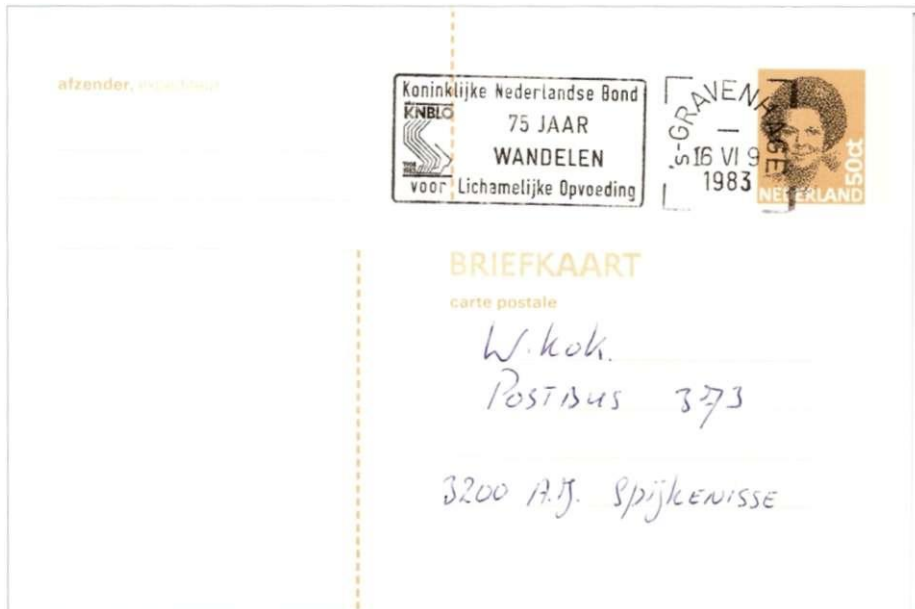 afzender, expéditeur
Koninklijke Nederlandse Bond
KNBLO
75 JAAR
WANDELEN
voor Lichamelijke Opvoeding
's-GRAVENHAGE
16 VI 9
1983
NEDERLAND
50ct
BRIEFKAART
carte postale
W. Kok.
POSTBUS 373
3200 A.J. SpijkENISSE